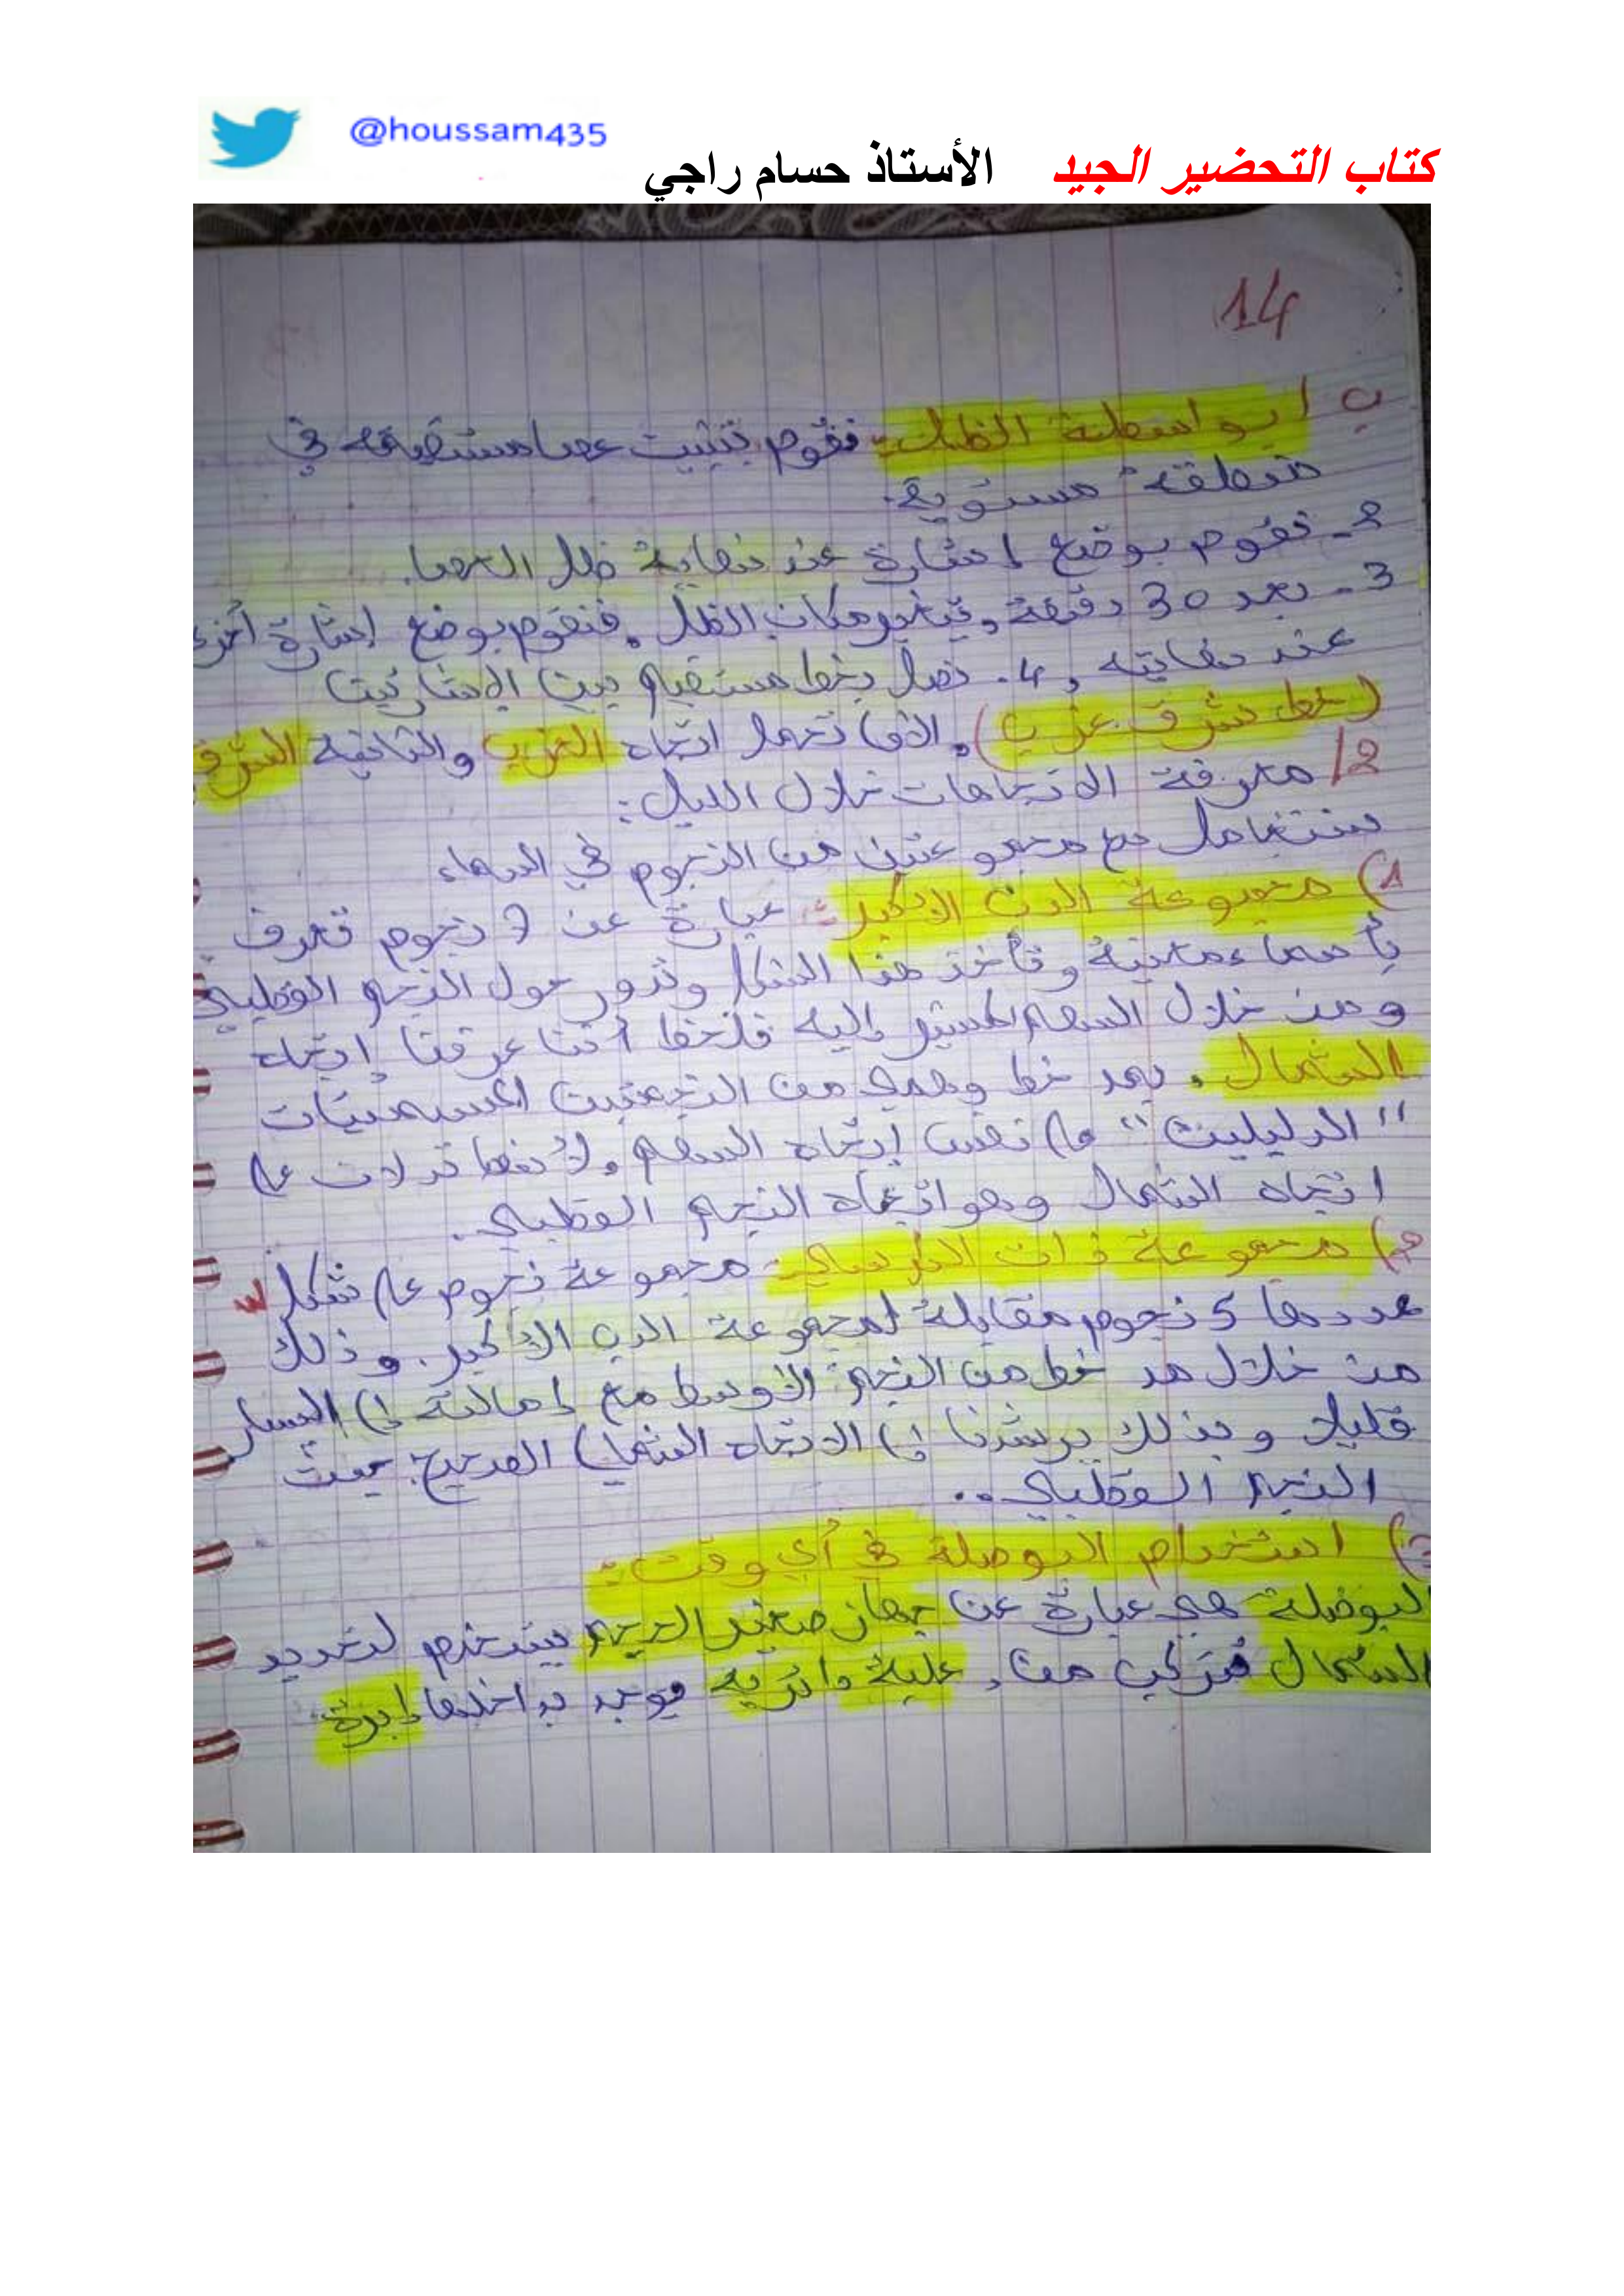 @houssam435
كتاب التحضير الجيد الأستاذ حسام راجي
14
ب / بواسطة الظل: نقوم بتثبيت عصا مستقيمة في
منطقة مستوية.
2- نقوم بوضع إشارة عند نهاية ظل العصا.
3- بعد 30 دقيقة, يتغير مكان الظل, فنقوم بوضع إشارة أخرى
عند نهايته, 4- نصل بخط مستقيم بين الإشارتين
(خط شرق غرب), الأولى تحمل اتجاه الغرب والثانية الشرق
2/ معرفة الاتجاهات خلال الليل:
سنتعامل مع مجموعتين من النجوم في السماء
1) مجموعة الدب الأكبر: عبارة عن 7 نجوم تعرف
بأسماء معينة وتأخذ هذا الشكل وتدور حول النجم القطبي
ومن خلال السهم المشير إليه فلاحظ أننا عرفنا إتجاه
الشمال, بمد خط وهمي من النجمتين المسميتان
"الدليلين" على نفس إتجاه السهم, لأنهما تدلان على
اتجاه الشمال وهو اتجاه النجم القطبي.
2) مجموعة ذات الكرسي: مجموعة نجوم على شكل W
عددها 5 نجوم مقابلة لمجموعة الدب الأكبر. وذلك
من خلال مد خط من النجم الأوسط مع إمالته إلى اليسار
قليلا وبذلك يرشدنا إلى الاتجاه الشمالي الصحيح. حيث
النجم القطبي..
استخدام البوصلة في أي وقت:
البوصلة هي عبارة عن جهاز صغير الحجم يستخدم لتحديد
الشمال تتركب من, علبة دائرية يوجد بداخلها إبرة